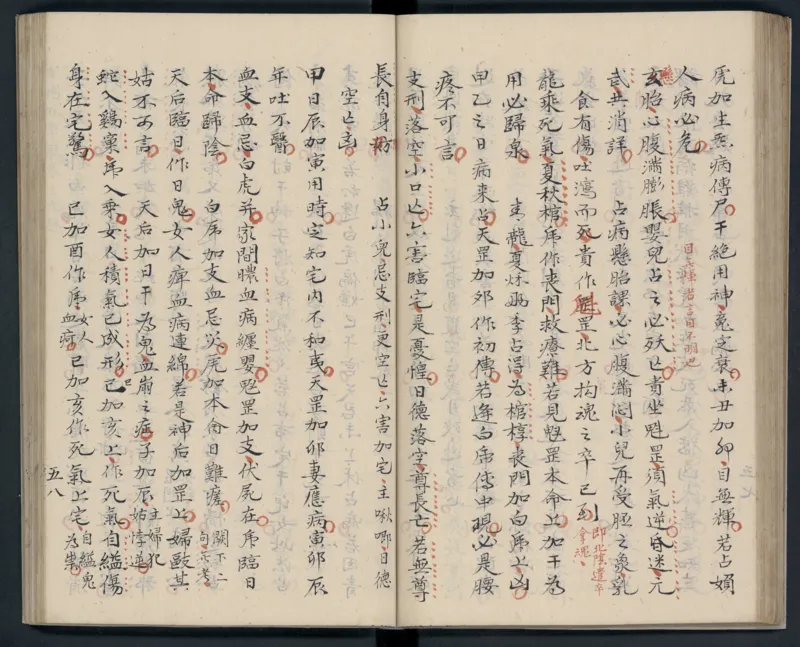 虎加生炁病傳尸干絶用神鬼定衰未丑加卯目無輝若占娟
目無輝者言目不明也
人病必危
玄胎心腹滿膨脹嬰兒占之必殀亡貴坐魁罡須氣逆昏迷元
武共消詳 占病懸胎課必心腹滿悶小兒再受胚之象乳
食有傷吐瀉而死貴作魁罡北方拘魂之卒已到
龍乘死氣夏秋棺虎作喪門救療難若見魁罡本命上加干為
用必歸泉 青龍夏秋季占得為棺椁喪門加白虎上凶
甲乙之日病來占天罡加卯作初傳若逢白虎傳中現必是腰
疼不可言
支刑落空小口亡六害臨宅是憂惶日德落空尊長亡若無尊
長自身妨 占小兒忌支刑更空亡六害加宅主啾唧日德
空亡
甲日辰加寅用時定知宅內不和夷天罡加卯妻應病寅卯辰
年吐不醫
血支血忌白虎并家間膿血病纏嬰魁罡加支伏尸在虎臨日
本命歸陰 白虎加支血忌災虎加本命日難瘥
天后臨日作日鬼女人痺血病連綿若是神后加罡上婦毆其
姑不可言 天后加日干為鬼血崩之症子加辰主婦犯姑
蛇入鷄巢虎入乘女人積氣已成形巳加亥上作死氣自縊傷
身在宅驚 巳加酉作虎女人血病巳加亥作死氣上宅自縊鬼為祟
五八